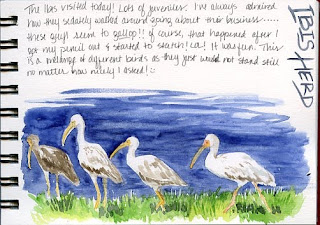 The Ibis visited today! Lots of juveniles. I've always admired
how they sedately walked around going about their business.....
these guys seem to gallop!! Of course, that happened after I
got my pencil out & started to sketch! La! It was fun. This
is a melange of different birds as they just would not stand still
no matter how nicely I asked! :)
IBIS HERD